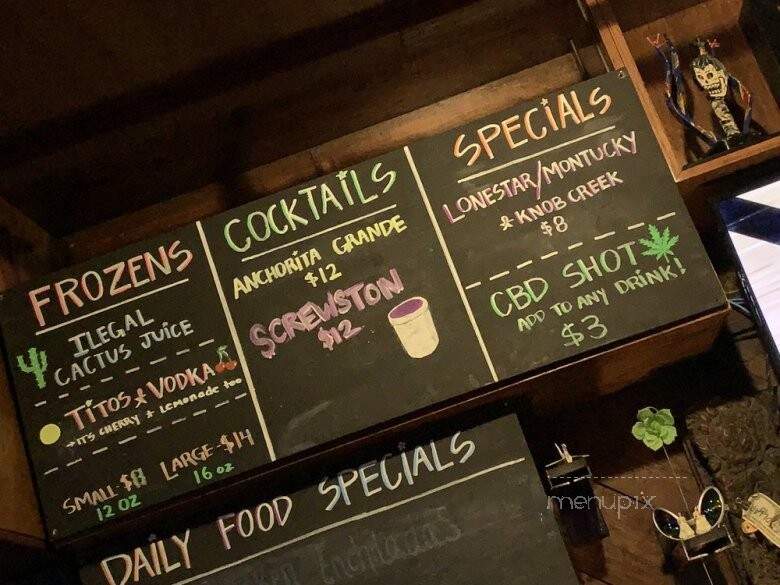 FROZENS
ILEGAL
CACTUS JUICE
TITOS & VODKA
→ITS CHERRY & LEMONADE too
SMALL-$8
12 OZ
LARGE-$14
16 oz
COCKTAILS
ANCHORITA GRANDE
$12
SCREWSTON
$12
SPECIALS
LONESTAR/MONTUCKY
& KNOB CREEK
$8
CBD SHOT
ADD TO ANY DRINK!
$3
DAILY FOOD SPECIALS
Enchiladas
menupix